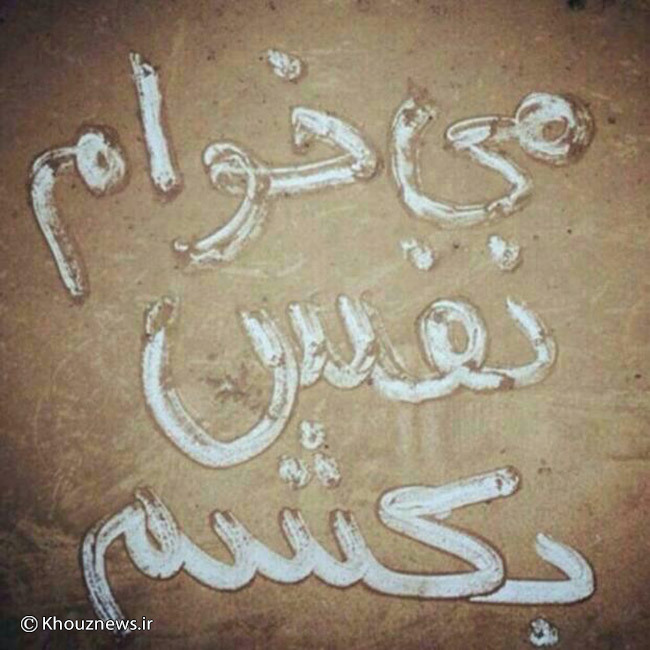 مي خوام
نفس
بکشم
© Khouznews.ir